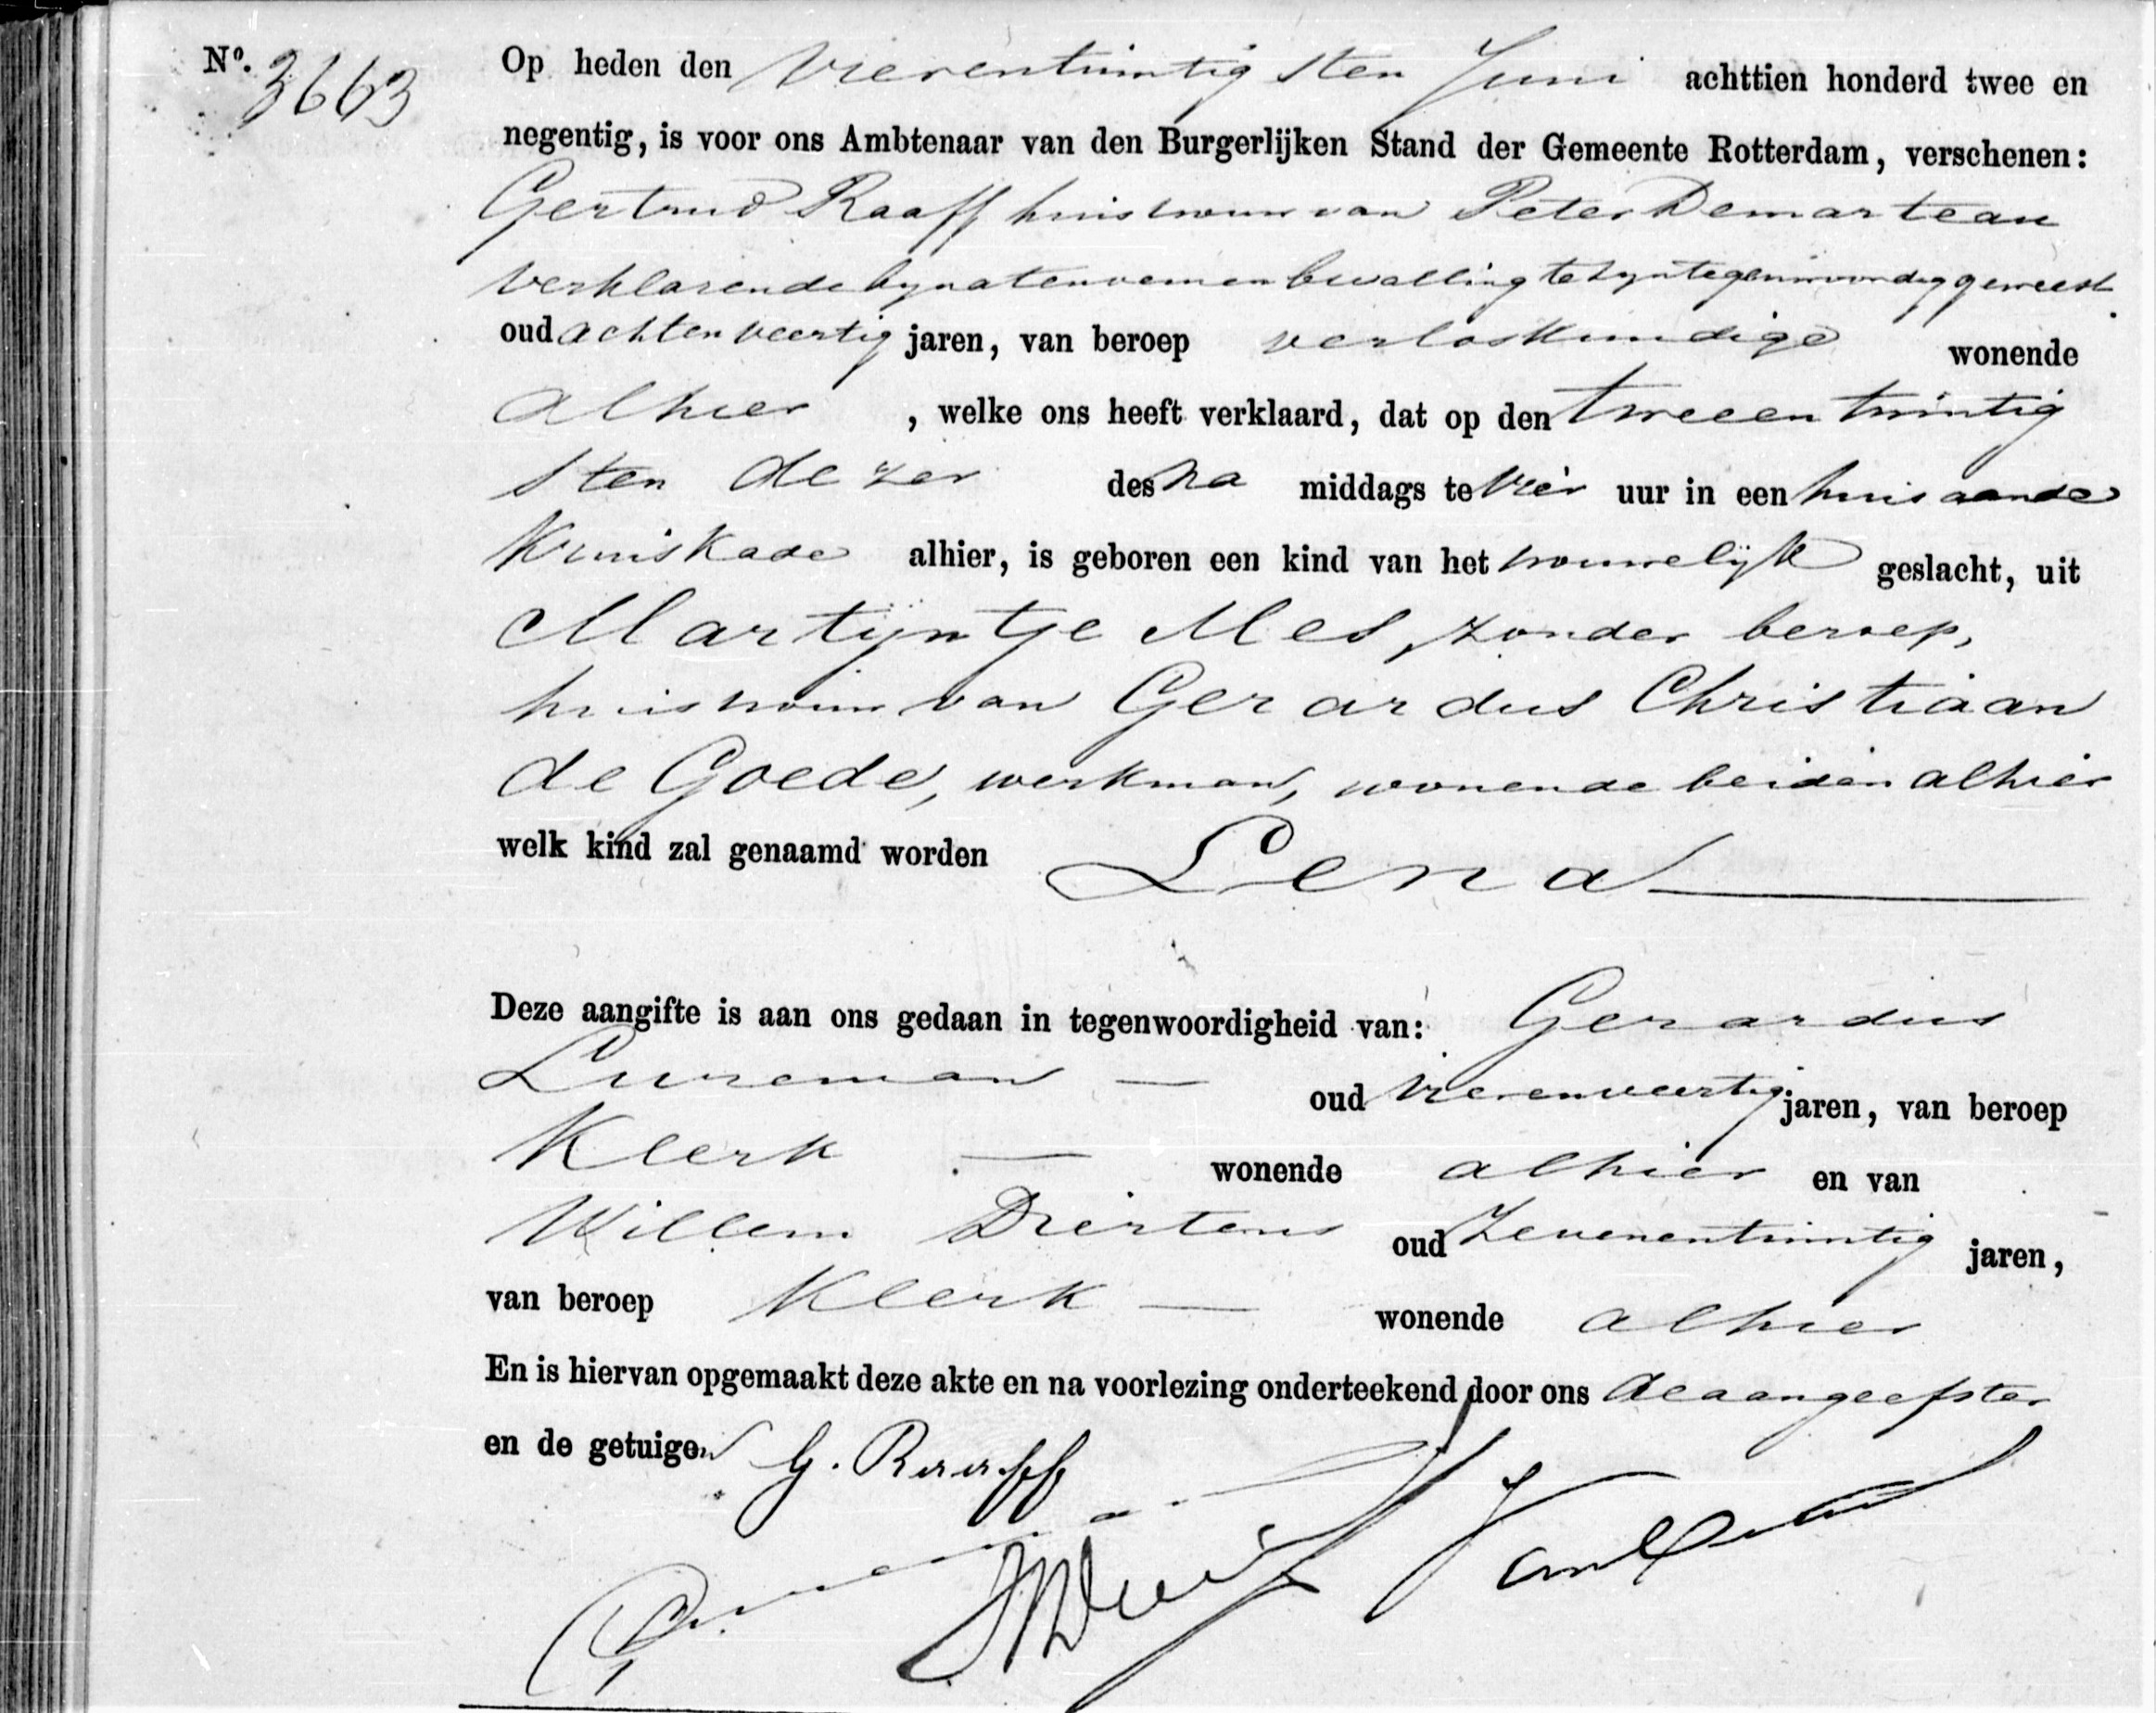 No. 3663
Op heden den vierentwintigsten Juni achttien honderd twee en
negentig, is voor ons Ambtenaar van den Burgerlijken Stand der Gemeente Rotterdam, verschenen:
Gertrud Raaff huisvrouw van Peter Demarteau
verklarende by na te noemen bevalling te zyn tegenwoordig geweest
oud achtenveertig jaren, van beroep verloskundige wonende
alhier, welke ons heeft verklaard, dat op den tweeentwintig
sten dezer des na middags te vier uur in een huis aan de
Kruiskade alhier, is geboren een kind van het vrouwelijk geslacht, uit
Martijntje Mes, zonder beroep,
huisvrouw van Gerardus Christiaan
de Goede, werkman, wonende beiden alhier
welk kind zal genaamd worden Lena
Deze aangifte is aan ons gedaan in tegenwoordigheid van: Gerardus
Lureman oud vierenveertig jaren, van beroep
Klerk wonende alhier en van
Willem oud zevenentwintig jaren,
van beroep Klerk wonende alhier
En is hiervan opgemaakt deze akte en na voorlezing onderteekend door ons de aangeefster
en de getuigen
G. Raaff